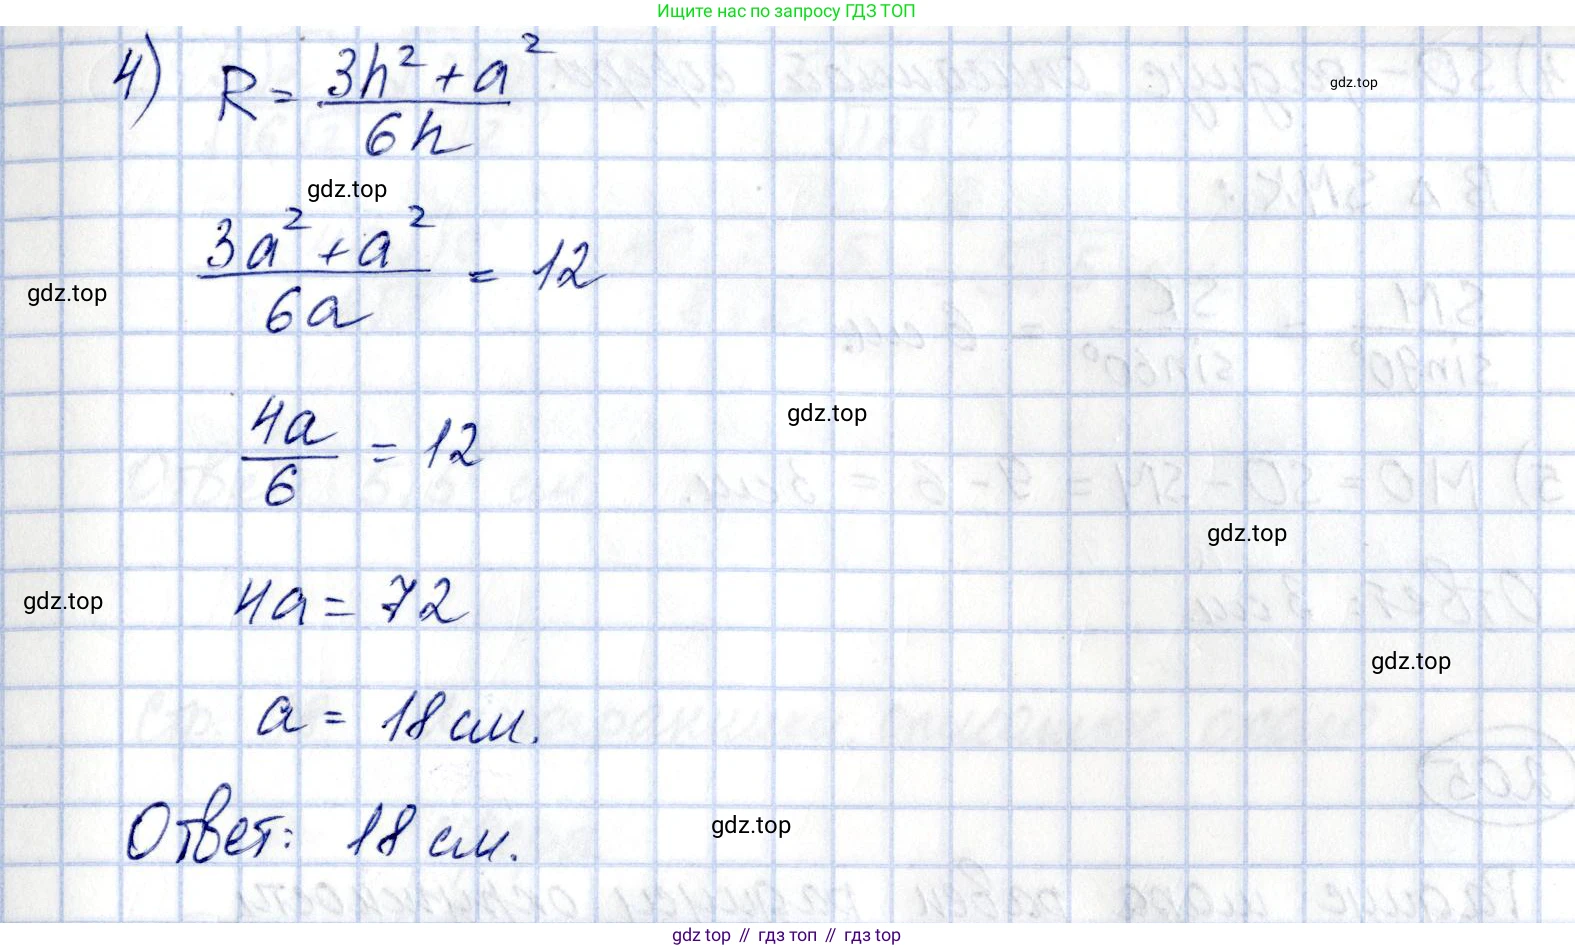 Ищите нас по запросу ГДЗ ТОП
4) R = (3h² + a²)/(6h)
gdz.top
gdz.top
(3a² + a²)/(6a) = 12
gdz.top
4a/6 = 12
gdz.top
gdz.top
4a = 72
gdz.top
gdz.top
a = 18 см.
Ответ: 18 см.
gdz.top
gdz top // гдз топ // гдз top